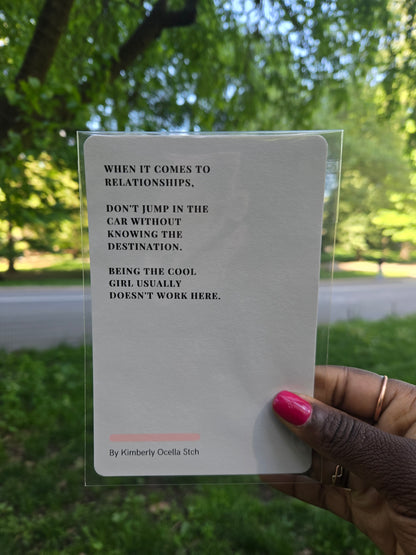 WHEN IT COMES TO
RELATIONSHIPS,
DON'T JUMP IN THE
CAR WITHOUT
KNOWING THE
DESTINATION.
BEING THE COOL
GIRL USUALLY
DOESN'T WORK HERE.
By Kimberly Ocella Stch